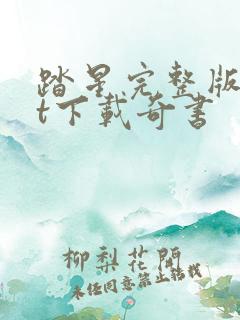 踏星完整版
t下載奇書
柳梨花開
未经同意禁止转载